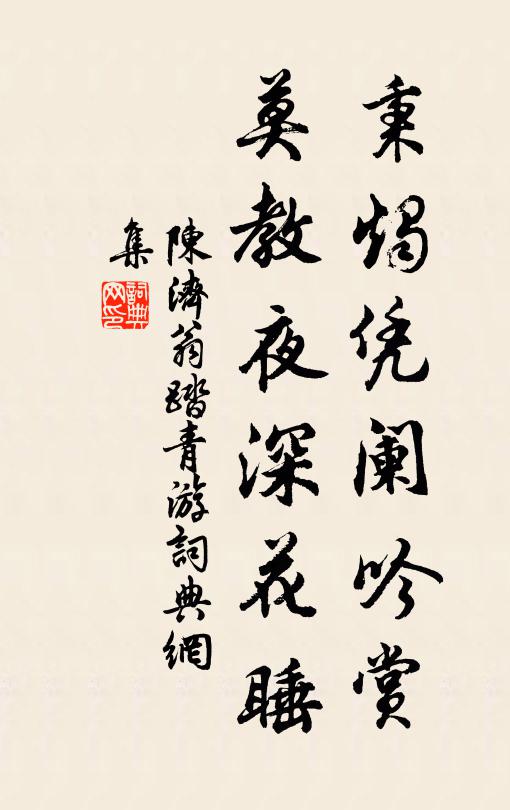 秉燭凭阑吟赏
莫教夜深花睡
陳濟翁踏青游詞典網
集
詞典
网印